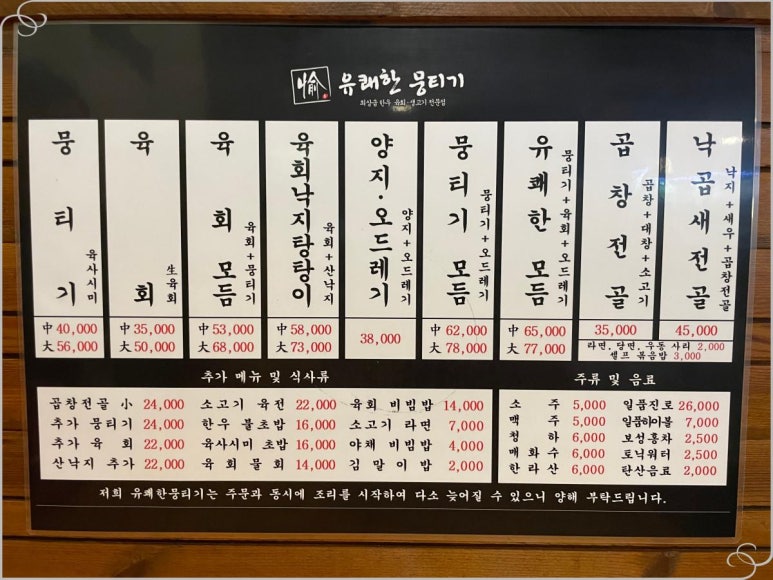 愉 유쾌한 뭉티기
최상급 한우 육회·생고기 전문점
뭉티기 육사시미
中 40,000
大 56,000
육회 生육회
中 35,000
大 50,000
육회 모듬 육회+뭉티기
中 53,000
大 68,000
육회낙지탕탕이 육회+산낙지
中 58,000
大 73,000
양지·오드레기 양지+오드레기
38,000
뭉티기 모듬 뭉티기+오드레기
中 62,000
大 78,000
유쾌한 모듬 뭉티기+육회+오드레기
中 65,000
大 77,000
곱창전골 곱창+대창+소고기
35,000
낙곱새전골 낙지+새우+곱창전골
45,000
라면, 당면, 우동 사리 2,000
셀프 볶음밥 3,000
추가 메뉴 및 식사류
곱창전골 小 24,000 소고기 육전 22,000 육회 비빔밥 14,000
추가 뭉티기 24,000 한우 불초밥 16,000 소고기 라면 7,000
추가 육회 22,000 육사시미 초밥 16,000 야채 비빔밥 4,000
산낙지 추가 22,000 육회물회 14,000 김말이밥 2,000
주류 및 음료
소주 5,000 일품진로 26,000
맥주 5,000 일품하이볼 7,000
청하 6,000 보성홍차 2,500
매화수 6,000 토닉워터 2,500
한라산 6,000 탄산음료 2,000
저희 유쾌한뭉티기는 주문과 동시에 조리를 시작하여 다소 늦어질 수 있으니 양해 부탁드립니다.